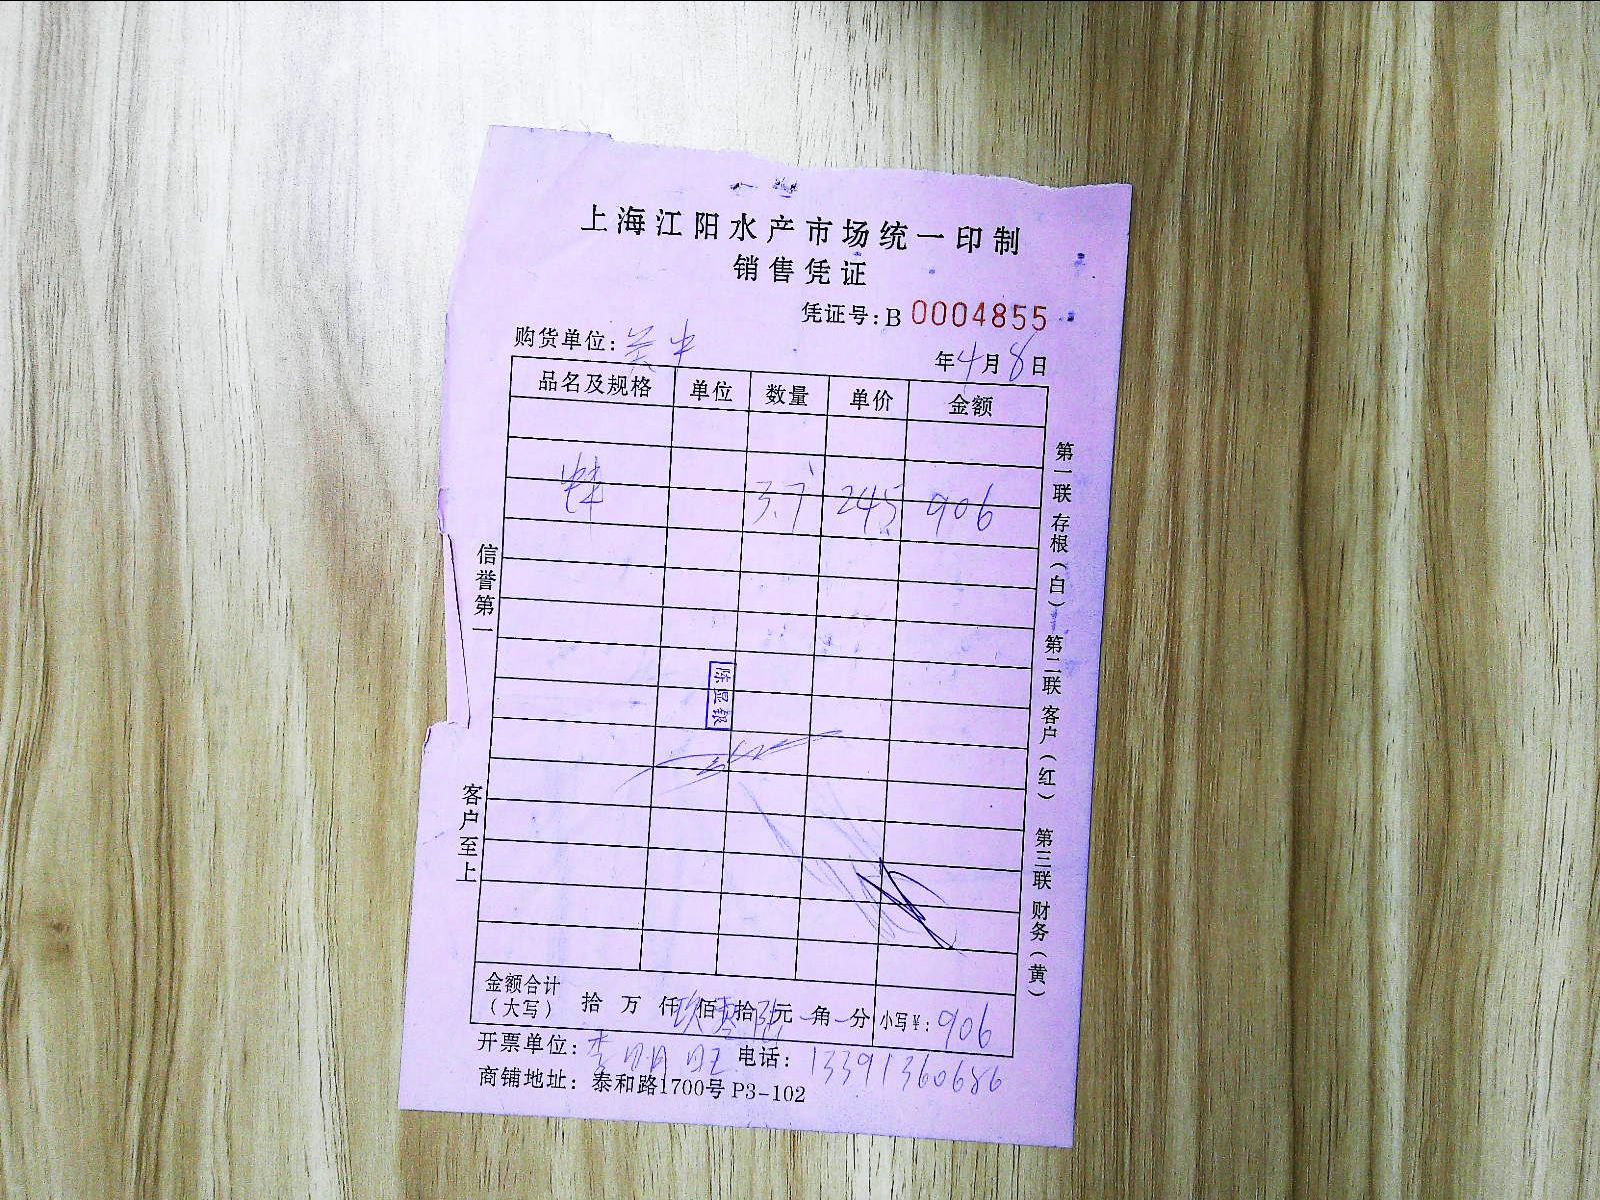 上海江阳水产市场统一印制
销售凭证
凭证号:B 0004855
购货单位:
年4月8日
品名及规格 单位 数量 单价 金额
3.7 245 906
信誉第一
客户至上
陈显银
第一联 存根(白) 第二联 客户(红) 第三联 财务(黄)
金额合计
(大写) 拾 万 仟 玖 佰 零 拾 陆 元 角 分 小写¥: 906
开票单位: 李 电话: 13391360686
商铺地址: 泰和路1700号 P3-102